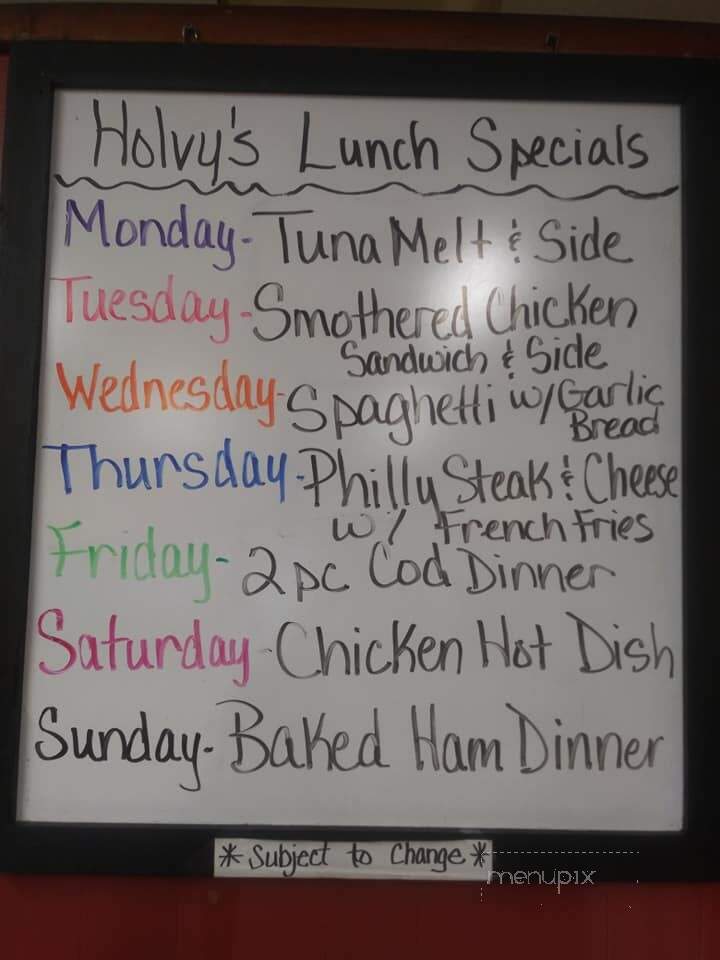 Holvy's Lunch Specials
Monday- Tuna Melt & Side
Tuesday- Smothered Chicken
Sandwich & Side
Wednesday- Spaghetti w/ Garlic
Bread
Thursday- Philly Steak & Cheese
w/ French Fries
Friday- 2 pc Cod Dinner
Saturday- Chicken Hot Dish
Sunday- Baked Ham Dinner
*Subject to Change*
menupix